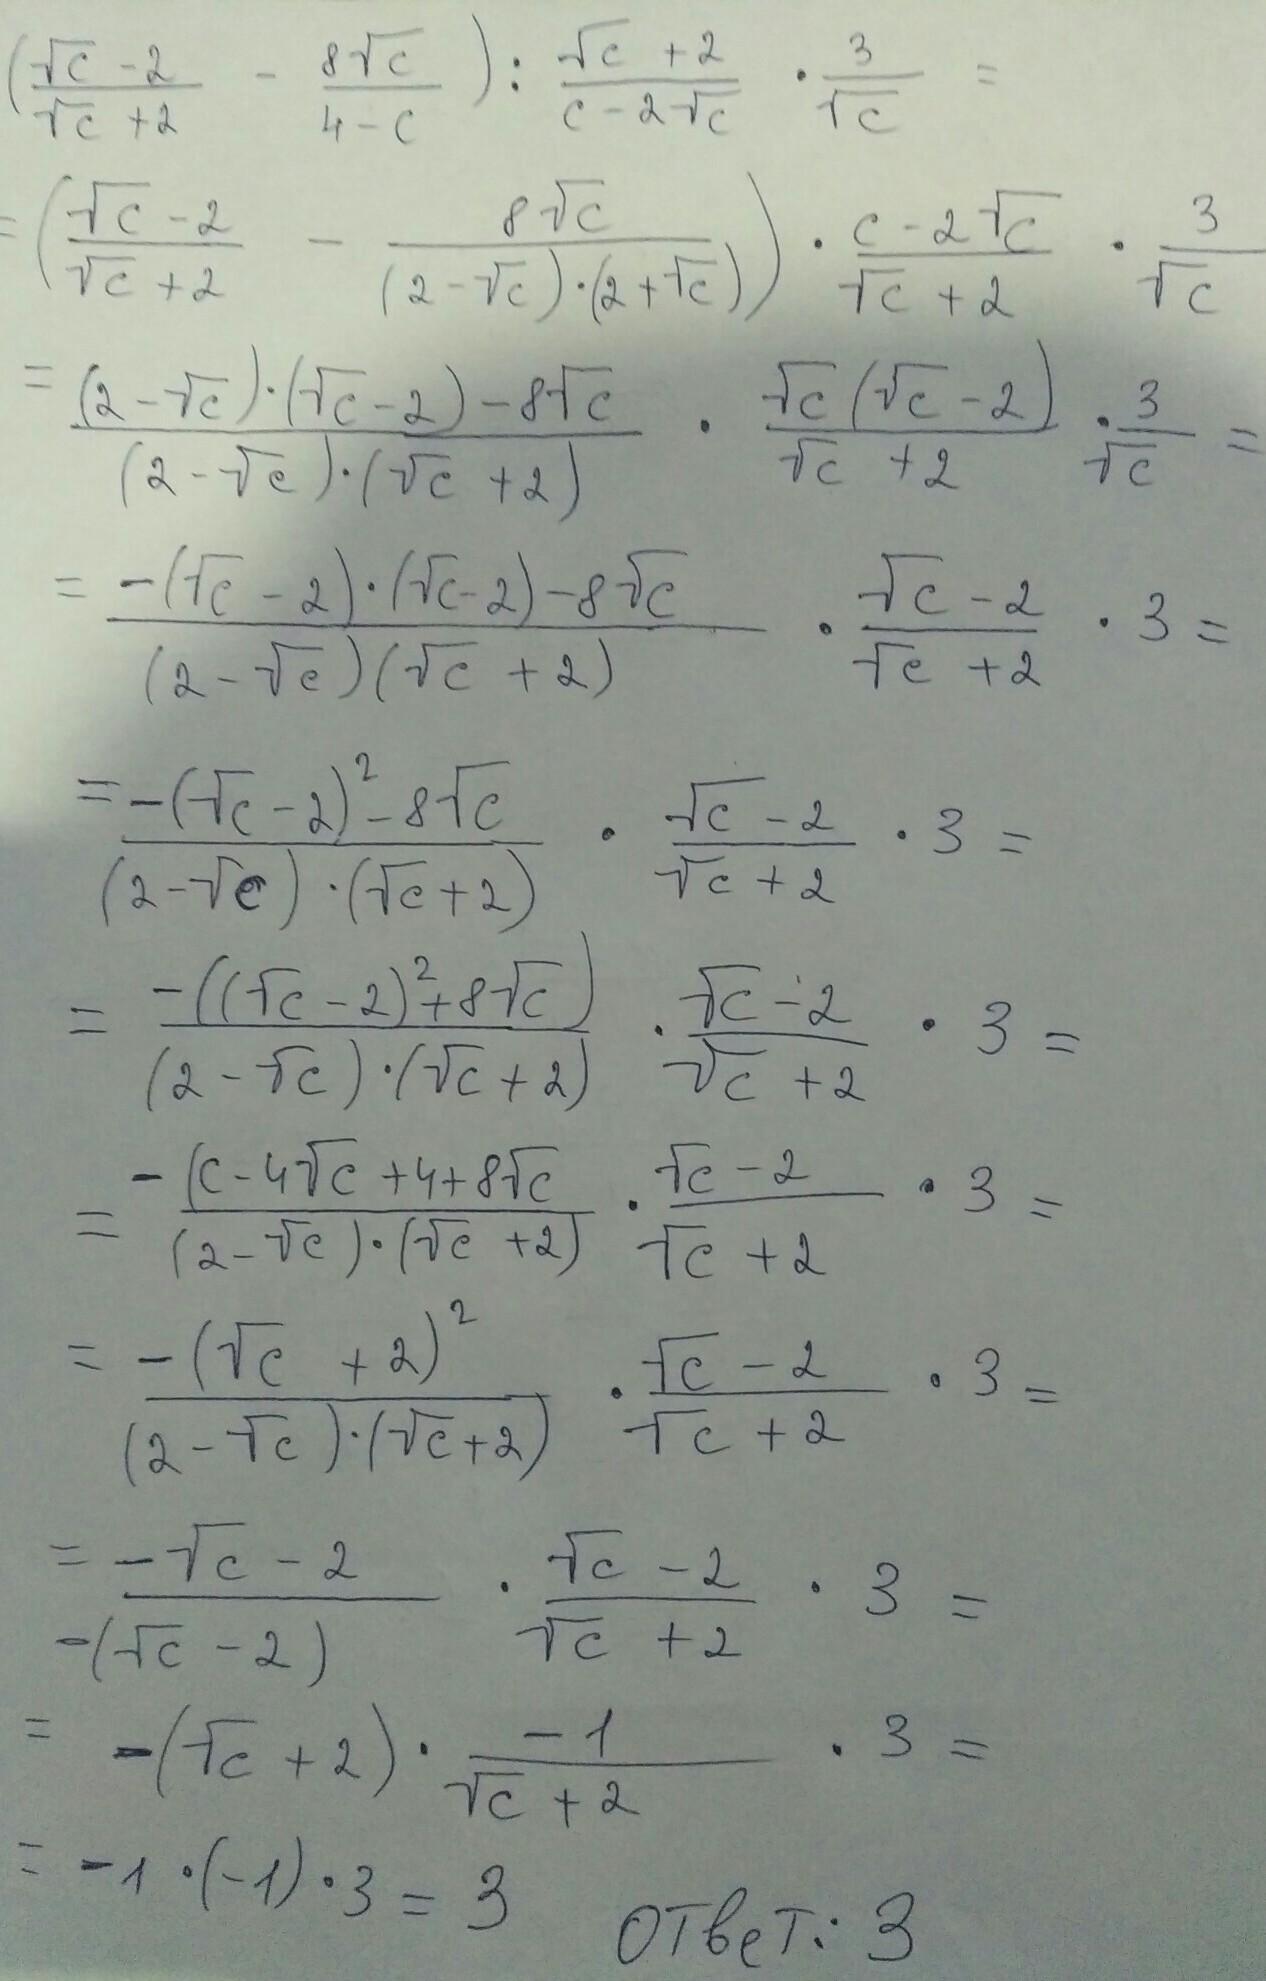 (√c - 2)/(√c + 2) - 8√c/(4 - c)) : (√c + 2)/(c - 2√c) · 3/√c =
= ((√c - 2)/(√c + 2) - 8√c/((2 - √c)·(2 + √c))) · (c - 2√c)/(√c + 2) · 3/√c
= ((2 - √c)·(√c - 2) - 8√c)/((2 - √c)·(√c + 2)) · √c(√c - 2)/(√c + 2) · 3/√c =
= (-(√c - 2)·(√c - 2) - 8√c)/((2 - √c)(√c + 2)) · (√c - 2)/(√c + 2) · 3 =
= (-(√c - 2)² - 8√c)/((2 - √c)·(√c + 2)) · (√c - 2)/(√c + 2) · 3 =
= -((√c - 2)² + 8√c)/((2 - √c)·(√c + 2)) · (√c - 2)/(√c + 2) · 3 =
= -(c - 4√c + 4 + 8√c/((2 - √c)·(√c + 2)) · (√c - 2)/(√c + 2) · 3 =
= -(√c + 2)²/((2 - √c)·(√c + 2)) · (√c - 2)/(√c + 2) · 3 =
= (-√c - 2)/(-(√c - 2)) · (√c - 2)/(√c + 2) · 3 =
= -(√c + 2) · -1/(√c + 2) · 3 =
= -1·(-1)·3 = 3 Ответ: 3